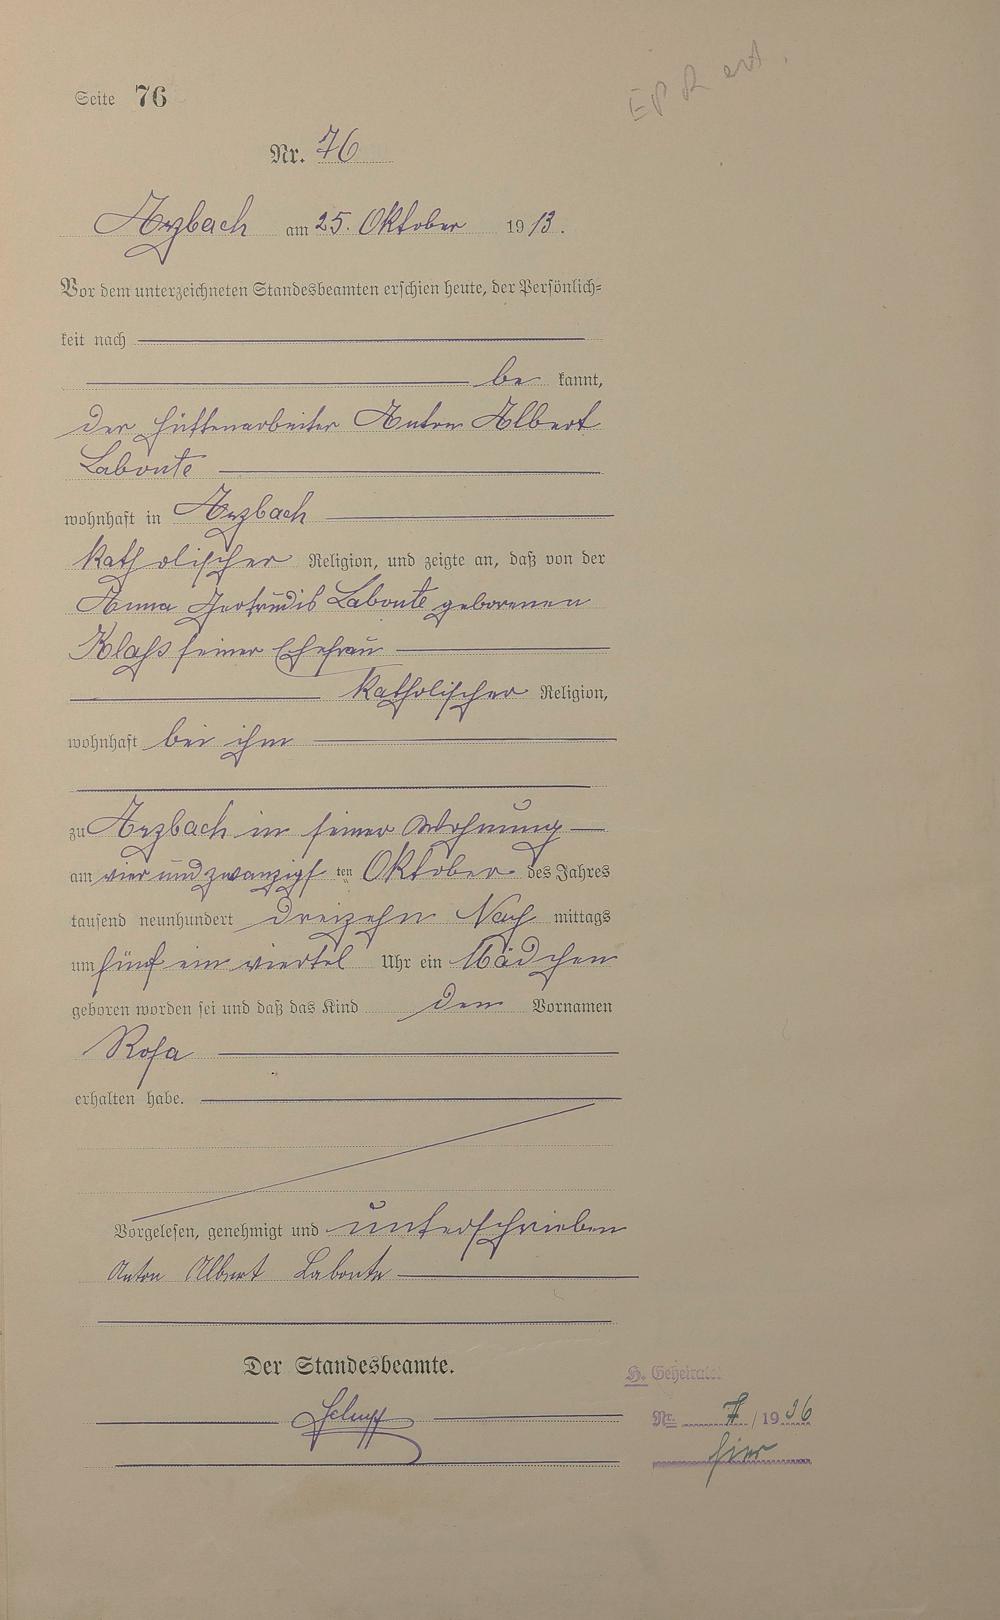 Seite 76
Nr. 76
Arzbach am 25. Oktober 1913.
Vor dem unterzeichneten Standesbeamten erschien heute, der Persönlich-
keit nach
be kannt,
der Hüttenarbeiter Anton Albert
Labonte
wohnhaft in Arzbach
katholischer Religion, und zeigte an, daß von der
Anna Gertrudis Labonte geborenen
Klaß seiner Ehefrau
katholischer Religion,
wohnhaft bei ihm
zu Arzbach in seiner Wohnung
am vier und zwanzigsten Oktober des Jahres
tausend neunhundert dreizehn Nach mittags
um fünf ein viertel Uhr ein Mädchen
geboren worden sei und daß das Kind den Vornamen
Rosa
erhalten habe.
Vorgelesen, genehmigt und unterschrieben
Anton Albert Labonte
Der Standesbeamte.
H. Geheiratet
Nr. 7/1936
hier